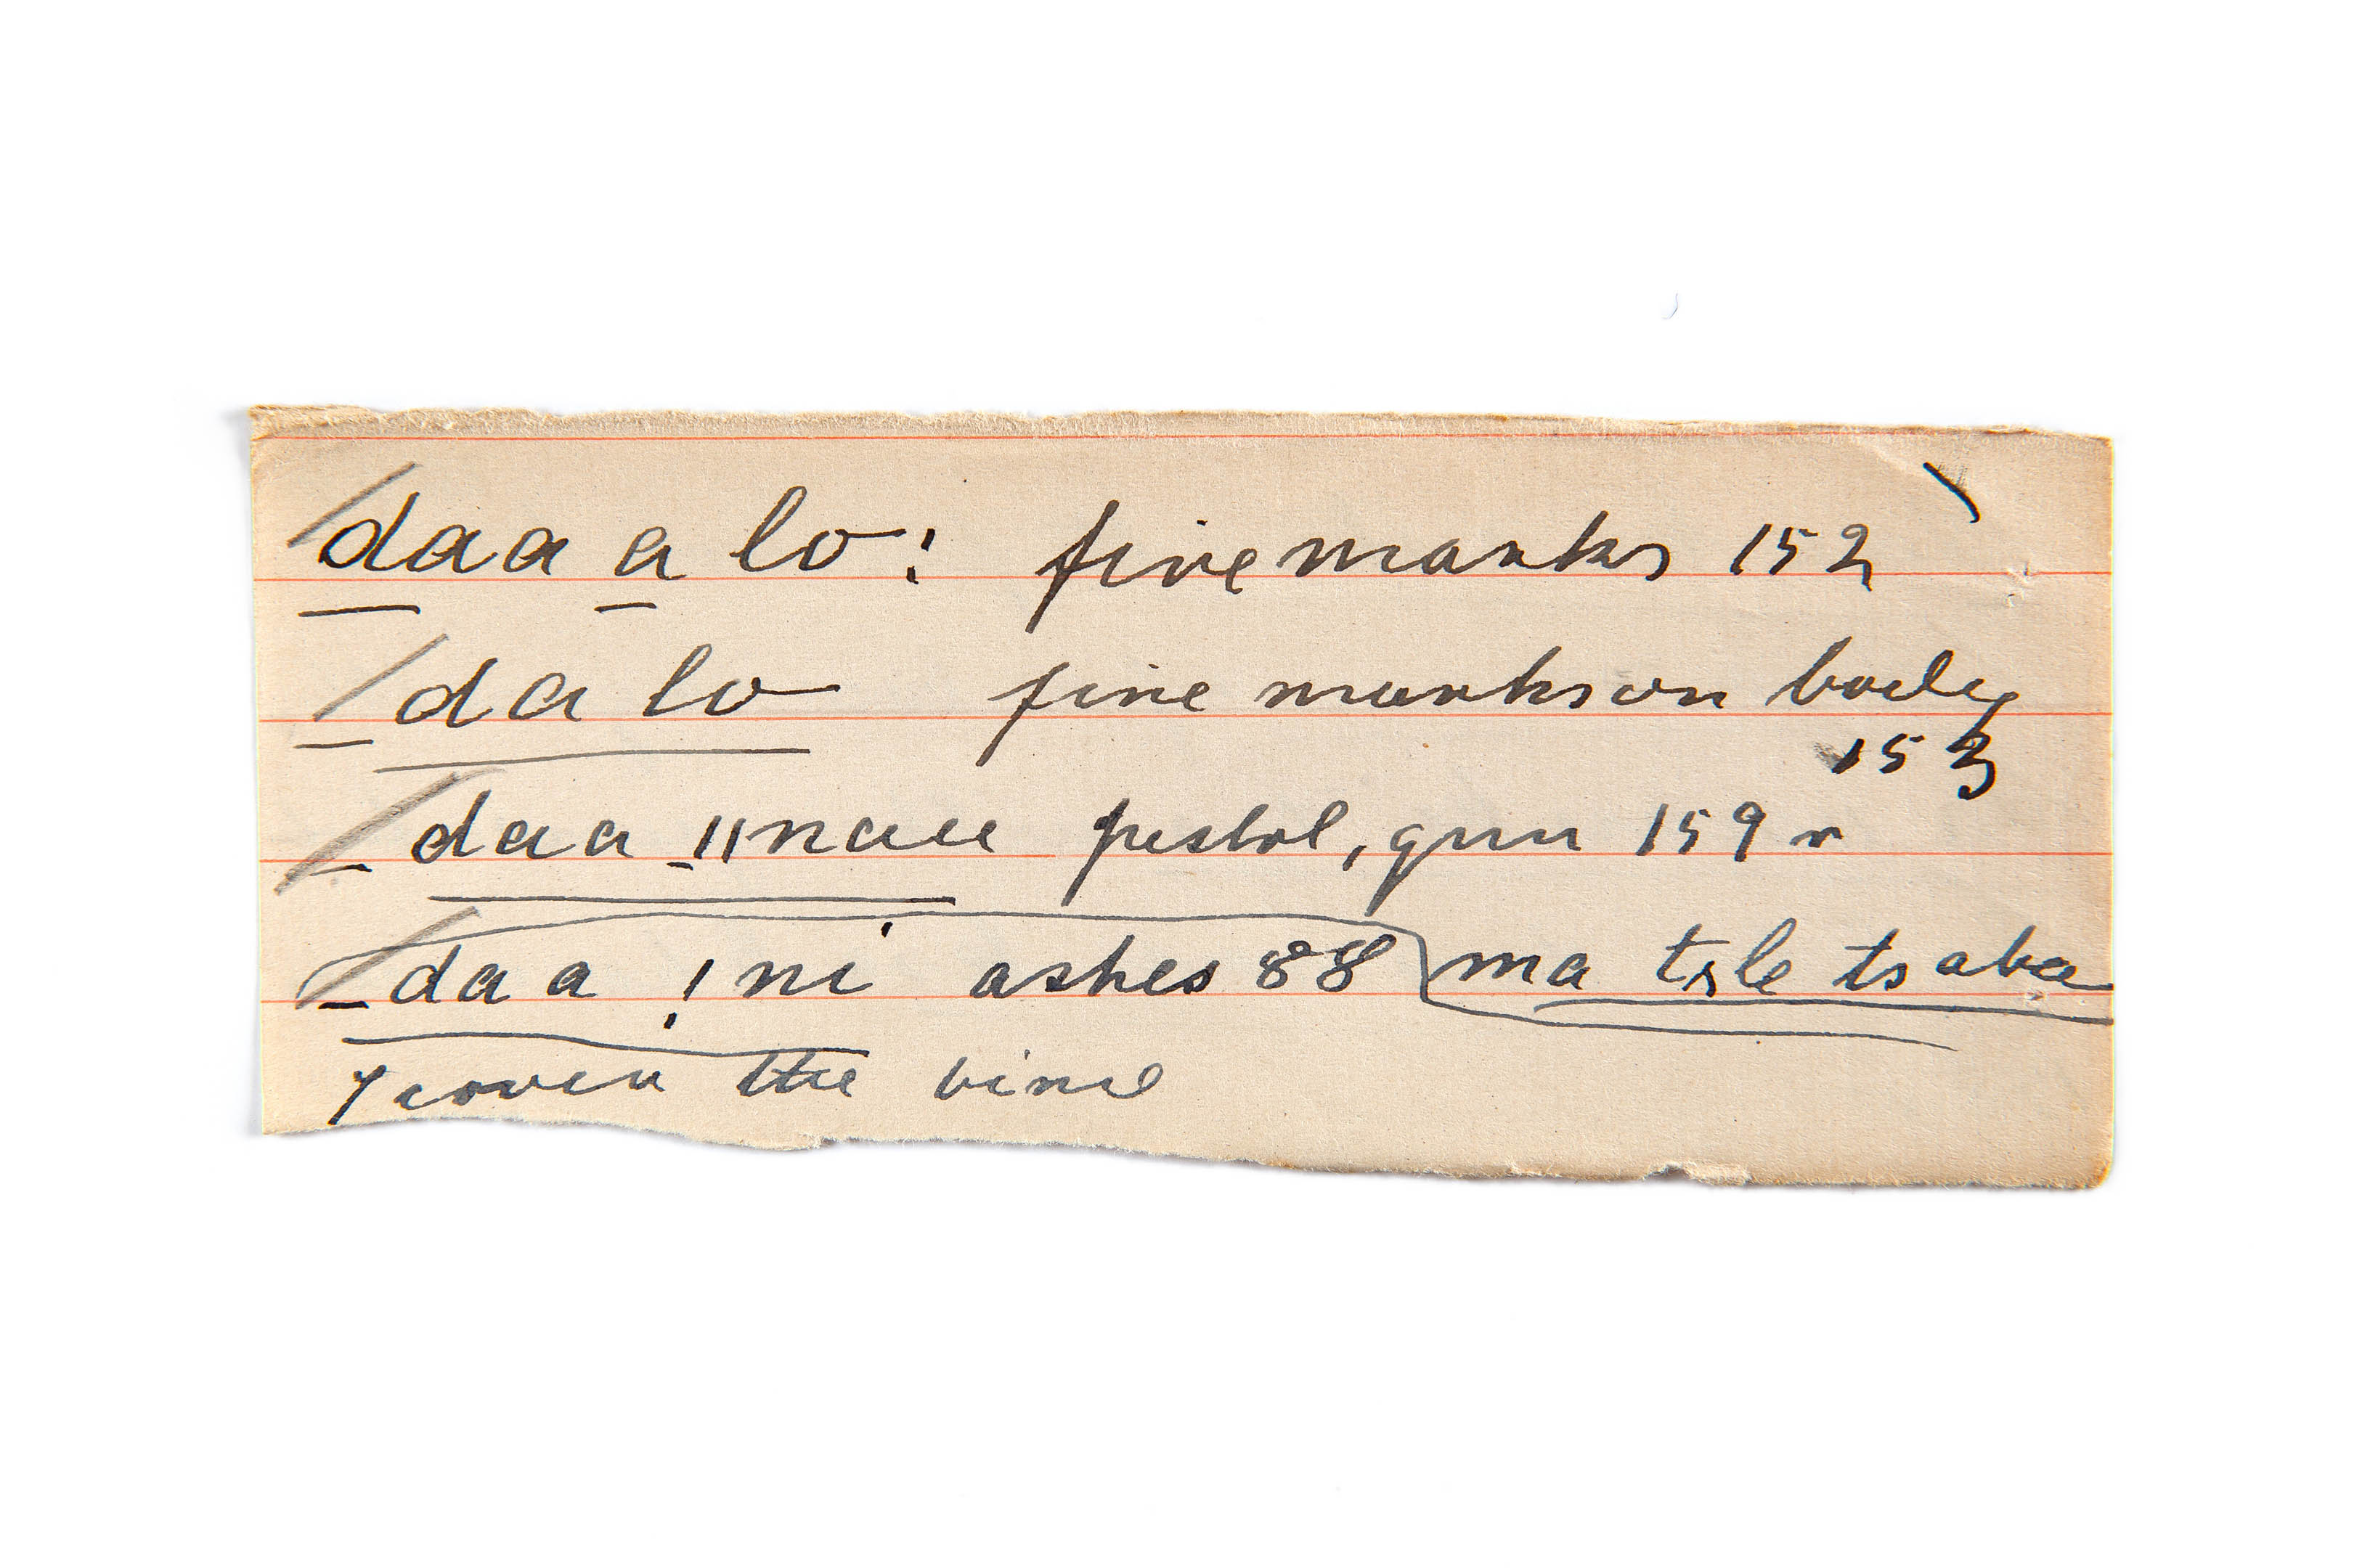 daa a lo: fine marks 152
_dalo fine marks on body
153
_daa _ǁnau pistol, gun 159 r
_daa !ni ashes 88 ma tsle tsaba
cover the